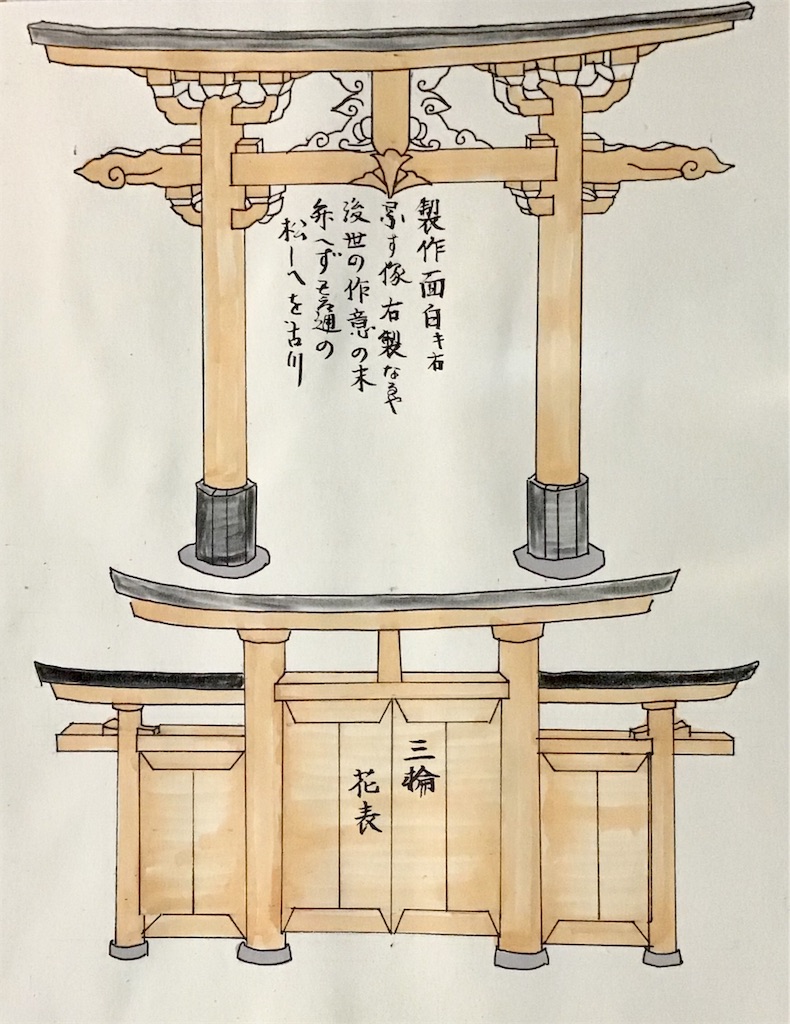 製作面白キ右
す像右製なるや
後世の作意の末
へず 通の
松 へを古川
三輪
花表